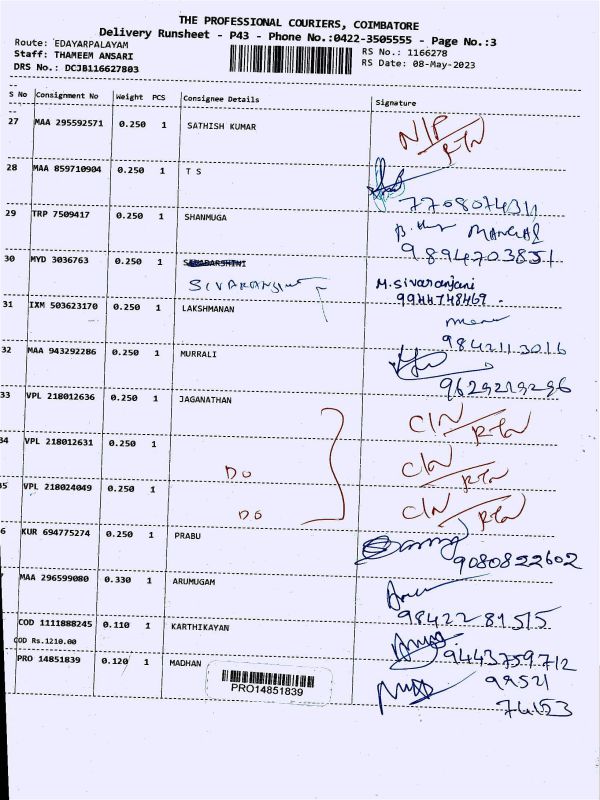 THE PROFESSIONAL COURIERS, COIMBATORE
Delivery Runsheet - P43 - Phone No.:0422-3505555 - Page No.:3
Route: EDAYARPALAYAM RS No.: 1166278
Staff: THAMEEM ANSARI RS Date: 08-May-2023
DRS No.: DCJB116627803
S No Consignment No Weight PCS Consignee Details Signature
27 MAA 295592571 0.250 1 SATHISH KUMAR N/P RTN
28 MAA 859710904 0.250 1 T S
7708074311
29 TRP 7509417 0.250 1 SHANMUGA MANGAL
9894703851
30 MYD 3036763 0.250 1
SIVARANJINI M.Sivaranjani
9944748469
31 IXM 503623170 0.250 1 LAKSHMANAN
9842113016
32 MAA 943292286 0.250 1 MURRALI
9629219296
33 VPL 218012636 0.250 1 JAGANATHAN C/N RTN
34 VPL 218012631 0.250 1 C/N RTN
DO
35 VPL 218024049 0.250 1 C/N RTN
DO
6 KUR 694775274 0.250 1 PRABU
9080822602
7 MAA 296599080 0.330 1 ARUMUGAM
9842281515
COD 1111888245 0.110 1 KARTHIKAYAN
COD Rs.1210.00 9443759712
PRO 14851839 0.120 1 MADHAN 99521
PRO14851839 74153